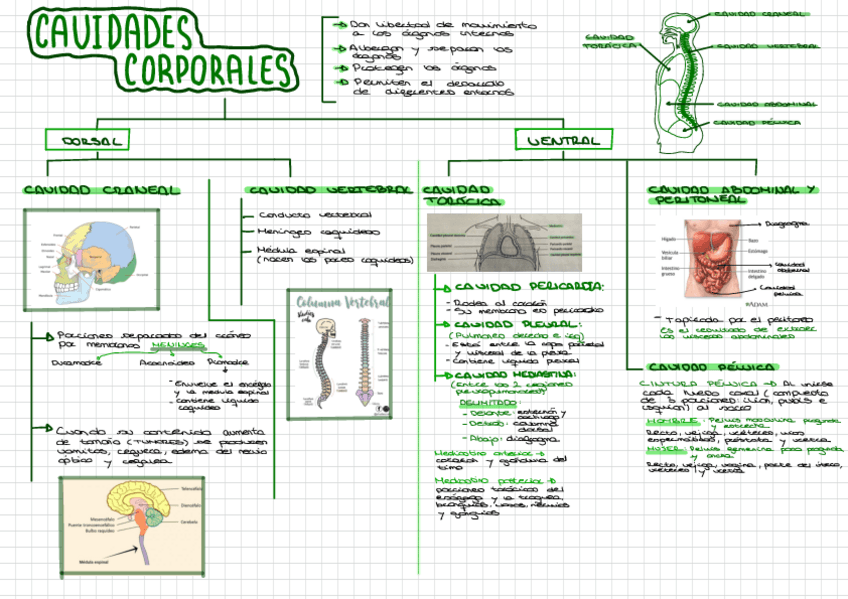 CAVIDADES
CORPORALES
Dan libertad de movimiento
a los órganos internos
Albergan y separan los
órganos
Protegen los órganos
Permiten el desarrollo
de diferentes entornos
CAVIDAD CRANEAL
CAVIDAD
TORÁCICA
CAVIDAD VERTEBRAL
CAVIDAD ABDOMINAL
CAVIDAD PÉLVICA
DORSAL
VENTRAL
CAVIDAD CRANEAL
Porciones separadas del cráneo
por membranas MENINGES
Duramadre
Aracnoides
Piamadre
- Envuelve el encéfalo
y la médula espinal
- contiene líquido
Cuando su contenido aumenta
de tamaño (TUMORES) se producen
vómitos, ceguera, edema del nervio
óptico y
Telencéfalo
Diencéfalo
Cerebelo
Mesencéfalo
Bulbo raquídeo
Médula espinal
CAVIDAD VERTEBRAL
Conducto vertebral
Meninges raquídeas
Médula espinal
(nacen los pares raquídeos)
Columna Vertebral
CAVIDAD
TORÁCICA
CAVIDAD PERICARDIA:
- Rodea al corazón
- Su membrana es pericardio
CAVIDAD PLEURAL:
(Pulmones derecho e izq)
- Están entre la capa parietal
y visceral de la pleura
- Contiene líquido pleural
CAVIDAD MEDIASTINA:
(Entre las 2 regiones
DELIMITADO:
- Delante: esternón y
- Detrás: columna
dorsal
- Abajo: diafragma
Mediastino anterior →
corazón y glándula del
timo
Mediastino posterior →
porciones torácicas del
esófago y la tráquea,
bronquios, vasos, nervios
y ganglios
CAVIDAD ABDOMINAL Y
PERITONEAL
Diafragma
Hígado
Vesícula
biliar
Intestino
grueso
Bazo
Estómago
Intestino
delgado
Cavidad
abdominal
Cavidad
pélvica
- Tapizada por el peritoneo
Es el
las vísceras abdominales
CAVIDAD PÉLVICA
CINTURA PÉLVICA → Al unirse
cada hueso coxal (compuesto
de 3 porciones: ilion, pubis e
isquion) al sacro
HOMBRE: Pelvis masculina profunda
y estrecha
Recto, vejiga, uréteres, vías
espermáticas, próstata y uretra
MUJER: Pelvis femenina poco profunda
y ancha
Recto, vejiga, vagina, parte del útero,
uréteres y uretra